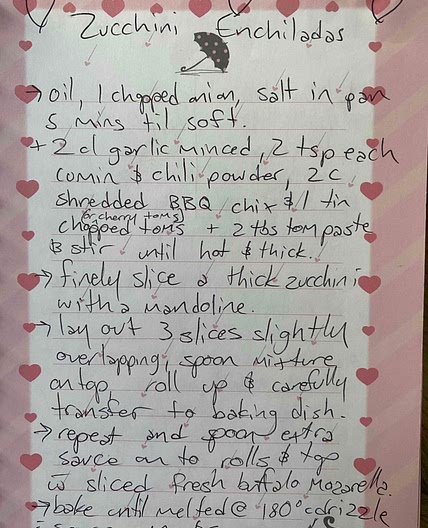 Zucchini Enchiladas
→ oil, 1 chopped onion, salt in pan
5 mins til soft.
+ 2 cl garlic minced, 2 tsp each
comin & chili powder, 2 c
shredded BBQ chix & 1 tin
(or cherry toms)
chopped toms + 2 tbs tom paste
& stir until hot & thick.
→ finely slice a thick zucchini
with a mandoline.
→ lay out 3 slices slightly
overlapping, spoon mixture
on top, roll up & carefully
transfer to baking dish.
→ repeat and spoon extra
sauce on to rolls & top
w sliced fresh buffalo mozarella.
→ bake until melted @ 180°c drizzle